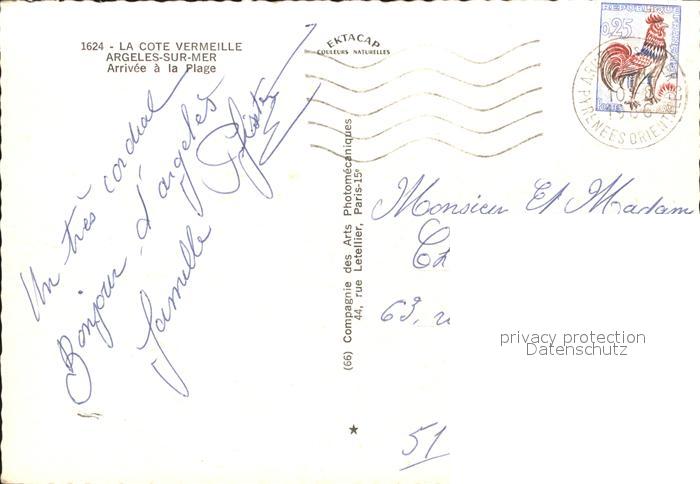 1624 - LA COTE VERMEILLE
ARGELES-SUR-MER
Arrivée à la Plage
EKTACAP
COULEURS NATURELLES
REPUBLIQUE FRANÇAISE
0,25
POSTES
PYRENEES ORIENTALES
Un très cordial
Bonjour d'argeles
famille
(66) Compagnie des Arts Photomécaniques
44, rue Letellier, Paris-15e
Monsieur Et Madam
63, r
51
privacy protection
Datenschutz